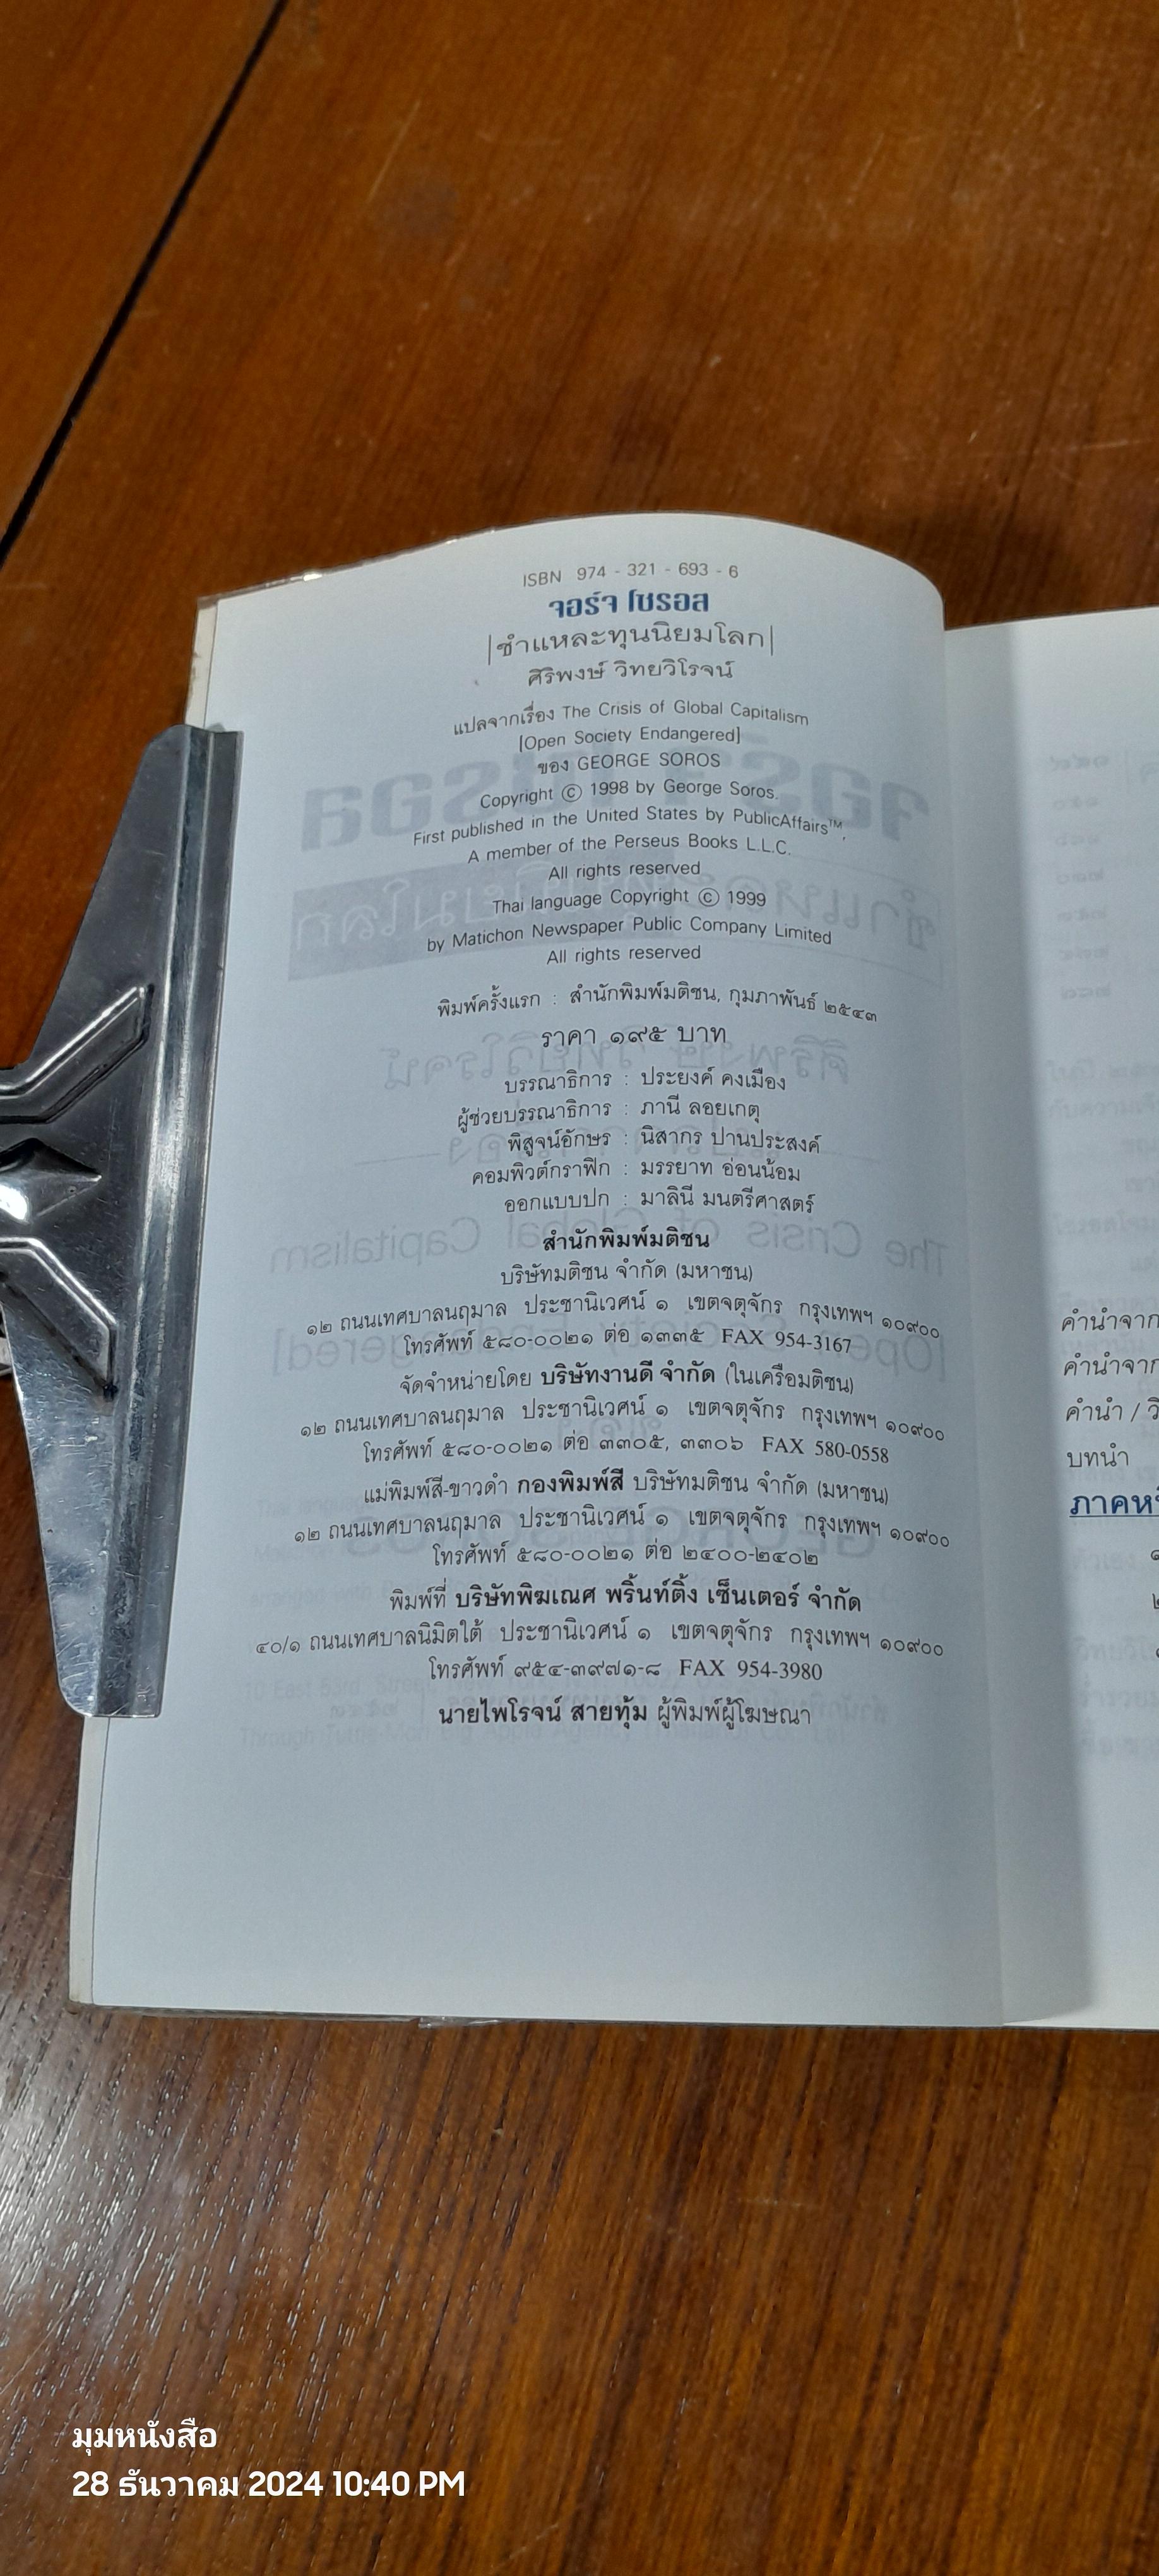 ISBN 974 - 321 - 693 - 6
จอร์จ โซรอส
|ชำแหละทุนนิยมโลก|
ศิริพงษ์ วิทยวิโรจน์
แปลจากเรื่อง The Crisis of Global Capitalism
[Open Society Endangered]
ของ GEORGE SOROS
Copyright © 1998 by George Soros.
First published in the United States by PublicAffairs™,
A member of the Perseus Books L.L.C.
All rights reserved
Thai language Copyright © 1999
by Matichon Newspaper Public Company Limited
All rights reserved
พิมพ์ครั้งแรก : สำนักพิมพ์มติชน, กุมภาพันธ์ ๒๕๔๓
ราคา ๑๙๕ บาท
บรรณาธิการ : ประยงค์ คงเมือง
ผู้ช่วยบรรณาธิการ : ภานี ลอยเกตุ
พิสูจน์อักษร : นิสากร ปานประสงค์
คอมพิวต์กราฟิก : มรรยาท อ่อนน้อม
ออกแบบปก : มาลินี มนตรีศาสตร์
สำนักพิมพ์มติชน
บริษัทมติชน จำกัด (มหาชน)
๑๒ ถนนเทศบาลนฤมาล ประชานิเวศน์ ๑ เขตจตุจักร กรุงเทพฯ ๑๐๙๐๐
โทรศัพท์ ๕๘๐-๐๐๒๑ ต่อ ๑๓๓๕ FAX 954-3167
จัดจำหน่ายโดย บริษัทงานดี จำกัด (ในเครือมติชน)
๑๒ ถนนเทศบาลนฤมาล ประชานิเวศน์ ๑ เขตจตุจักร กรุงเทพฯ ๑๐๙๐๐
โทรศัพท์ ๕๘๐-๐๐๒๑ ต่อ ๓๓๐๕, ๓๓๐๖ FAX 580-0558
แม่พิมพ์สี-ขาวดำ กองพิมพ์สี บริษัทมติชน จำกัด (มหาชน)
๑๒ ถนนเทศบาลนฤมาล ประชานิเวศน์ ๑ เขตจตุจักร กรุงเทพฯ ๑๐๙๐๐
โทรศัพท์ ๕๘๐-๐๐๒๑ ต่อ ๒๔๐๐-๒๔๐๒
พิมพ์ที่ บริษัทพิฆเณศ พริ้นท์ติ้ง เซ็นเตอร์ จำกัด
๔๐/๑ ถนนเทศบาลนิมิตใต้ ประชานิเวศน์ ๑ เขตจตุจักร กรุงเทพฯ ๑๐๙๐๐
โทรศัพท์ ๙๕๔-๓๙๗๑-๘ FAX 954-3980
นายไพโรจน์ สายทุ้ม ผู้พิมพ์ผู้โฆษณา
คำนำจาก
คำนำจาก
คำนำ / วิ
บทนำ
มุมหนังสือ
28 ธันวาคม 2024 10:40 PM